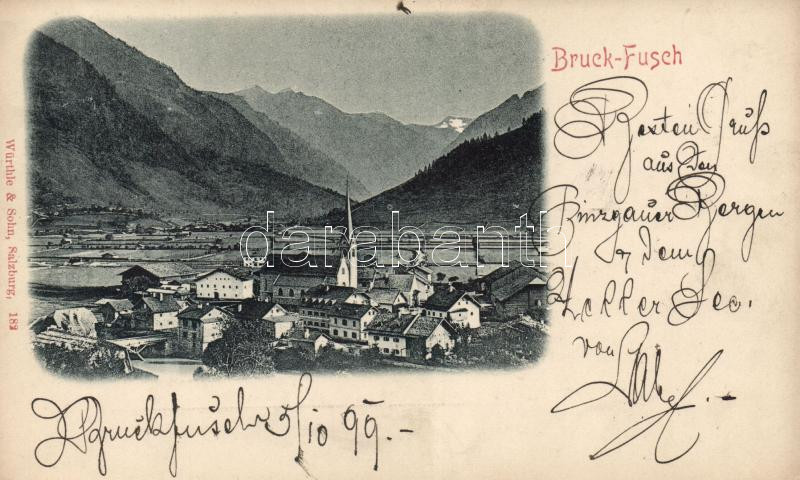 Bruck-Fusch
Besten Gruß
aus den
Pinzgauer Bergen
u dem
Zeller See.
von
Bruckfusch 5/10 99.-
Würthle & Sohn, Salzburg, 182
darabanth